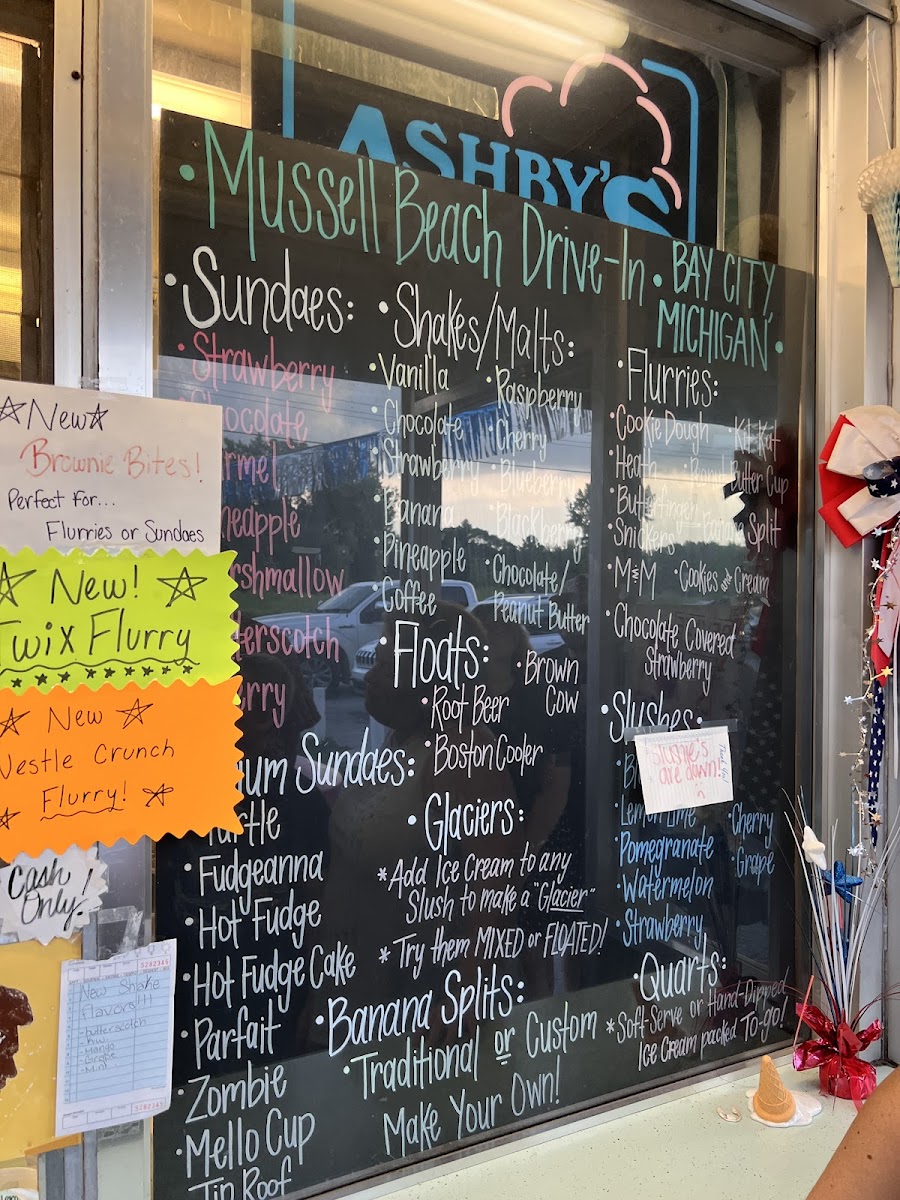 ASHBY'S
• Mussell Beach Drive-In • BAY CITY,
MICHIGAN •
• Sundaes:
• Strawberry
Chocolate
rmel
neapple
rshmallow
terscotch
erry
ium Sundaes:
Turtle
• Fudgeanna
• Hot Fudge
• Hot Fudge Cake
• Parfait
• Zombie
• Mello Cup
Tin Roof
• Shakes/Malts:
• Vanilla
• Chocolate
• Strawberry
• Banana
• Pineapple
• Coffee
• Raspberry
• Cherry
• Blueberry
• Blackberry
• Chocolate/
Peanut Butter
• Floats:
• Root Beer
• Boston Cooler
• Brown
Cow
• Glaciers:
* Add Ice Cream to any
Slush to make a "Glacier"
* Try them MIXED or FLOATED!
• Banana Splits:
• Traditional or Custom
Make Your Own!
• Flurries:
• Cookie Dough
• Heath
• Butterfinger
• Snickers
• M&M
• Kit Kat
• Peanut Butter Cup
• Banana Split
• Cookies and Cream
• Chocolate Covered
Strawberry
• Slushes:
Slushie's
are down!
Thank You!
• Lemon Lime
• Pomegranate
• Watermelon
• Strawberry
• Cherry
• Grape
• Quarts:
* Soft-Serve or Hand-Dipped
Ice Cream packed To-go!
New
Brownie Bites!
Perfect for...
Flurries or Sundaes
New!
Twix Flurry
New
Nestle Crunch
Flurry!
Cash
Only!
5282345
New Shake
flavors!!!
- butterscotch
- Kiwi
- Mango
- Grape
- Mint
5282345